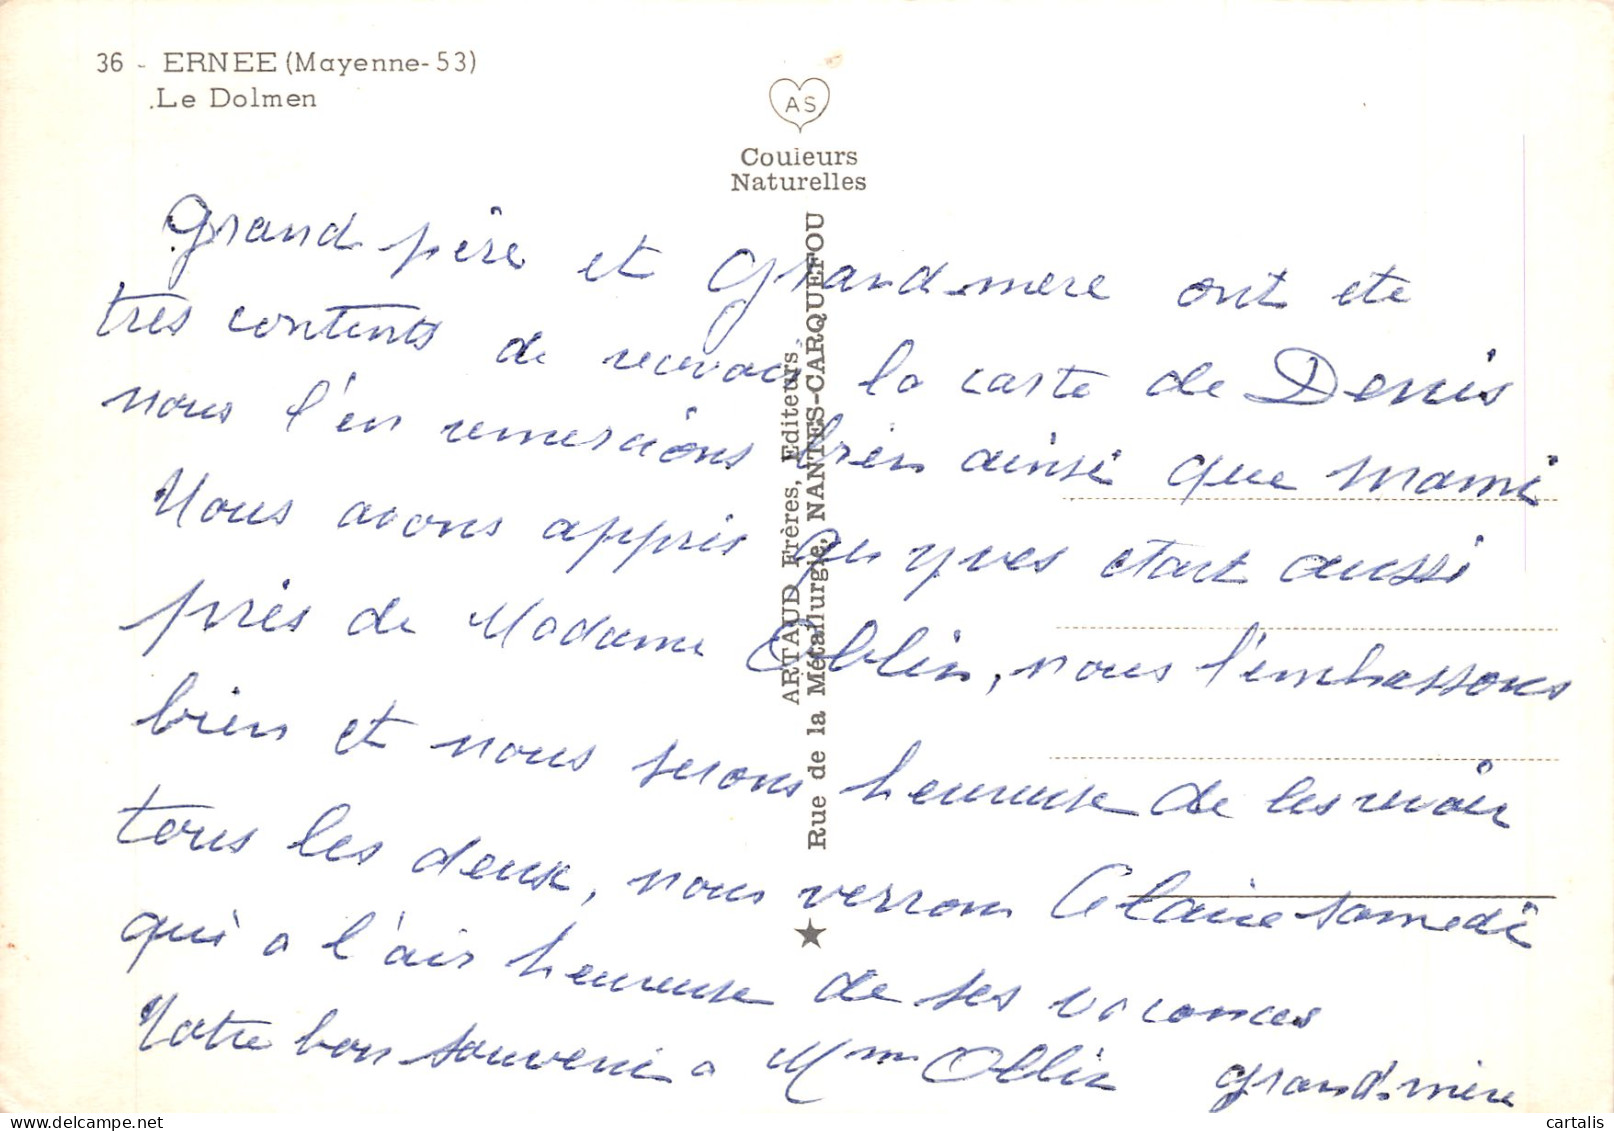 36 - ERNEE (Mayenne-53)
Le Dolmen
AS
Couleurs
Naturelles
ARTAUD Frères, Editeurs
Rue de la Métallurgie, NANTES-CARQUEFOU
Grand père et Grand-mère ont ete
très contents de recevoir la carte de Denis
nous l'en remercions bien ainsi que mami
Nous avons appris qu yves etait aussi
près de Madame Oblin, nous l'embrassons
bien et nous serons heureuse de les revoir
tous les deux, nous verrons Claire samedi
qui a l'air heureuse de ses vacances
Notre bon souvenir a Mme Oblin Grand-mère
cartalis